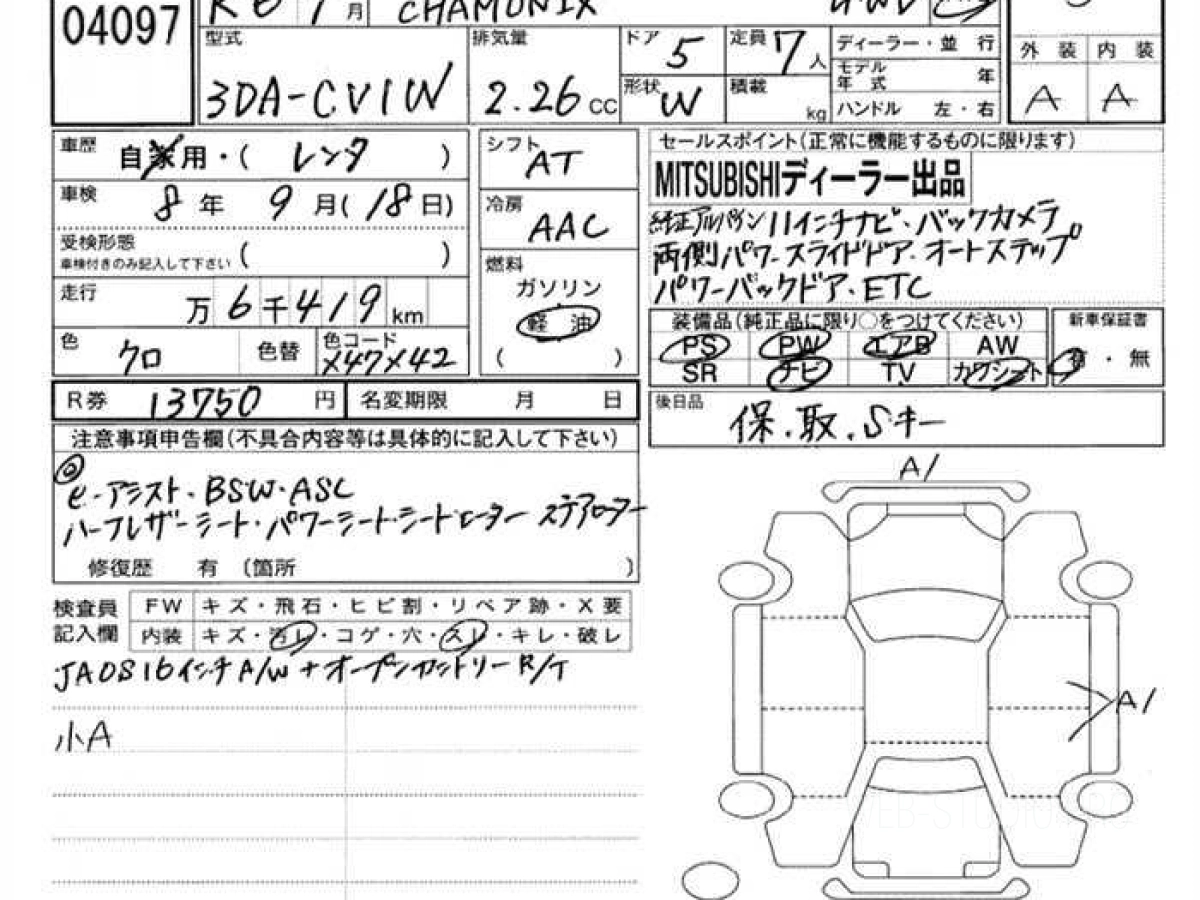 04097
R6 9月 CHAMONIX 4WD
型式 3DA-CV1W
排気量 2.26 CC
ドア 5
定員 7人
形状 W
積載 kg
ディーラー・並行
モデル年式 年
ハンドル 左・右
外装 内装
A A
車歴 自家用・( レンタ )
車検 8年 9月(18日)
受検形態
車検付きのみ記入して下さい ( )
走行 万6千419km
色 クロ 色替 色コード X47X42
シフト AT
冷房 AAC
燃料
ガソリン
軽油
( )
セールスポイント(正常に機能するものに限ります)
MITSUBISHIディーラー出品
純正アルパイン11インチナビ・バックカメラ
両側パワースライドドア・オートステップ
パワーバックドア・ETC
装備品(純正品に限り○をつけてください)
PS PW エアB AW
SR ナビ TV カワシート
新車保証書
有・無
R券 13750円 名変期限 月 日
後日品 保.取.Sキー
注意事項申告欄(不具合内容等は具体的に記入して下さい)
e-アシスト・BSW・ASC
ハーフレザーシート・パワーシート・シートヒーター ステアヒーター
修復歴 有 〔箇所 〕
検査員記入欄
FW キズ・飛石・ヒビ割・リペア跡・X要
内装 キズ・汚レ・コゲ・穴・スレ・キレ・破レ
JAOS16インチA/W+オープンカントリーR/T
小A
A1
A1